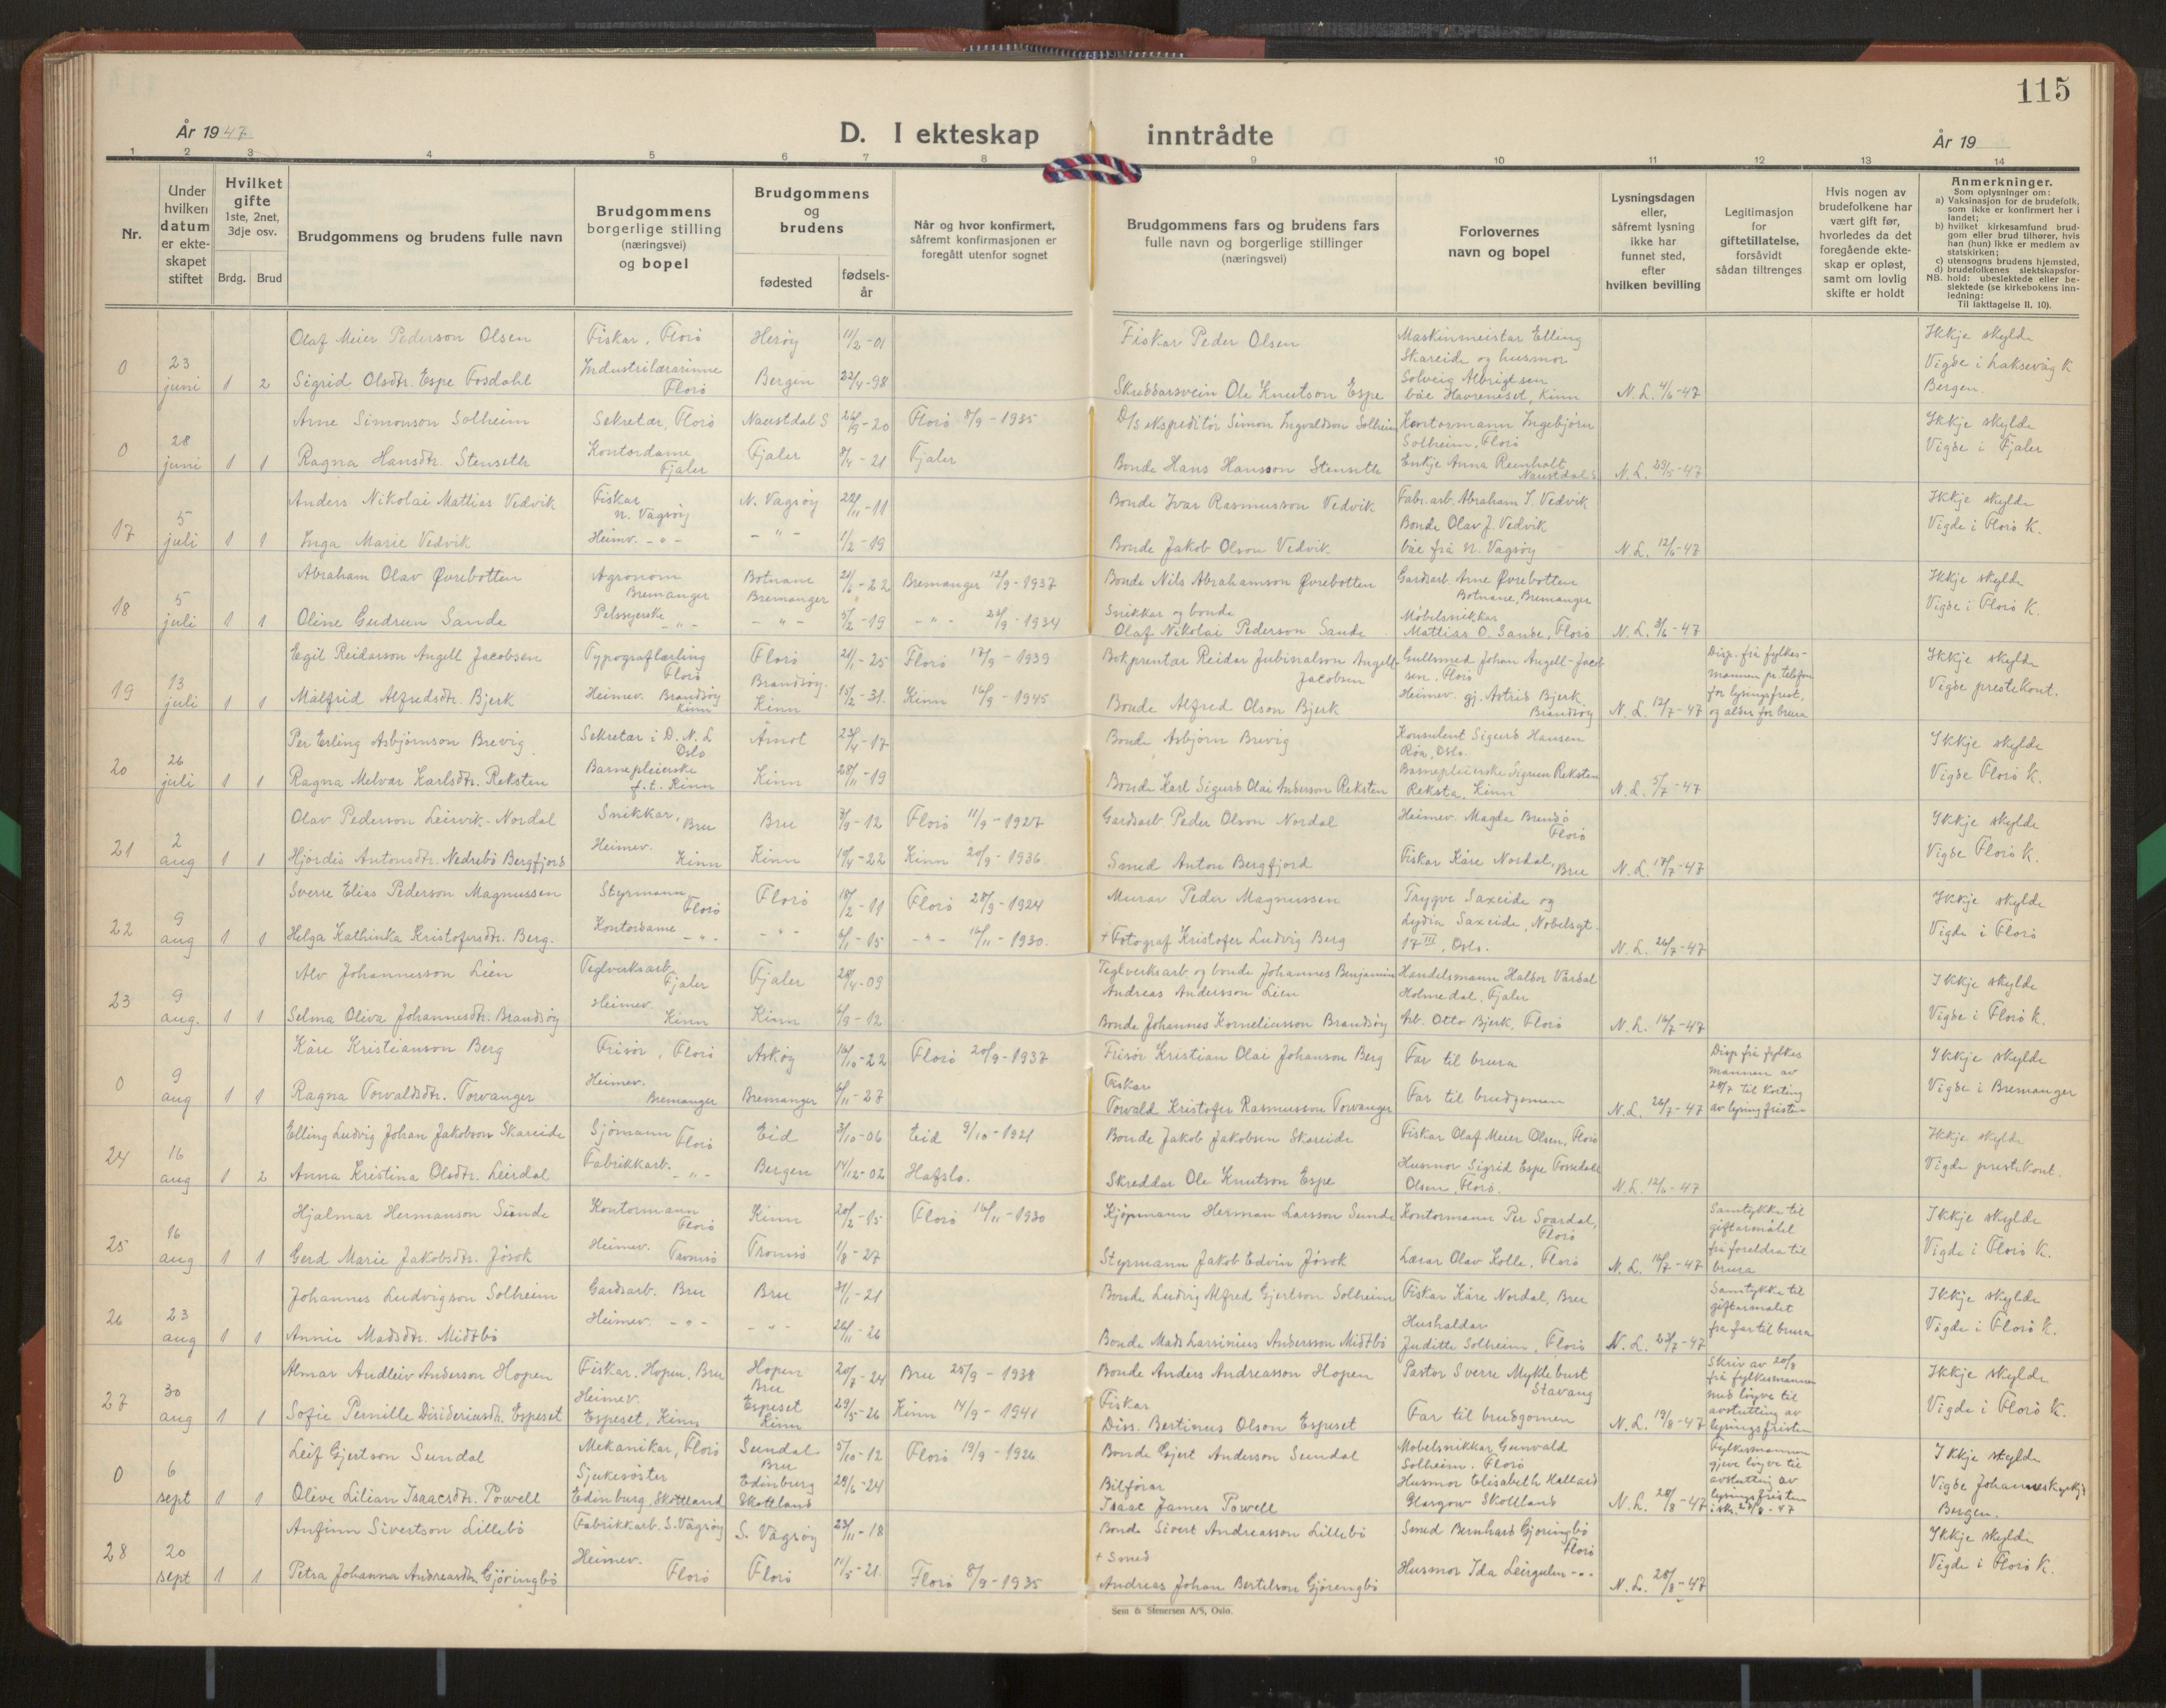 115
År 1947
D. I ekteskap inntrådte
År 19
1 2 3 4 5 6 7 8 9 10 11 12 13 14
Nr.
Under hvilken datum er ekteskapet stiftet
Hvilket gifte 1ste, 2net, 3dje osv.
Brdg. Brud
Brudgommens og brudens fulle navn
Brudgommens borgerlige stilling (næringsvei) og bopel
Brudgommens og brudens
fødested
fødsels-år
Når og hvor konfirmert, såfremt konfirmasjonen er foregått utenfor sognet
Brudgommens fars og brudens fars fulle navn og borgerlige stillinger (næringsvei)
Forlovernes navn og bopel
Lysningsdagen eller, såfremt lysning ikke har funnet sted, efter hvilken bevilling
Legitimasjon for giftetillatelse, forsåvidt sådan tiltrenges
Hvis nogen av brudefolkene har vært gift før, hvorledes da det foregående ekteskap er opløst, samt om lovlig skifte er holdt
Anmerkninger.
Som oplysninger om:
a) Vaksinasjon for de brudefolk, som ikke er konfirmert her i landet;
b) hvilket kirkesamfund brudgom eller brud tilhører, hvis han (hun) ikke er medlem av statskirken;
c) utensogns brudens hjemsted,
d) brudefolkenes slektskapsforhold: ubeslektede eller beslektede (se kirkebokens innledning:
NB. Til iakttagelse II. 10).
0 23 juni 1 2
Olaf Meier Pederson Olsen Fiskar, Florö Heröy 11/2-01 Fiskar Peder Olsen
Sigrid Olsdtr. Espe Fosdahl Industrilærarinne Florö Bergen 22/4-98 Skreddarsvein Ole Knutson Espe
Maskinmeistar Elling Skareide og husmor Solveig Albrigtsen båe Havreneset, Kinn N.L. 4/6-47
Ikkje skylde Vigde i Laksevåg K Bergen.
0 28 juni 1 1
Arne Simonson Solheim Sekretær, Florö Naustdal S 26/9-20 Florö 8/9-1935 D/S ekspeditör Simon Ingvaldson Solheim
Ragna Hansdtr. Stenseth Kontordame Fjaler Fjaler 8/4-21 Fjaler Bonde Hans Hansson Stenseth
Kontormann Ingebjörn Solheim, Florö Enkje Anna Reinholt Naustdal S N.L. 29/5-47
Ikkje skylde Vigde i Fjaler
17 5 juli 1 1
Anders Nikolai Mattias Vedvik Fiskar N. Vågsöy N. Vågsöy 22/11-11 Bonde Ivar Rasmusson Vedvik
Inga Marie Vedvik Heimv. -"- -"- 1/2-19 Bonde Jakob Olson Vedvik
Fabr.arb. Abraham I. Vedvik Bonde Olav J. Vedvik båe frå N. Vågsöy N.L. 12/6-47
Ikkje skylde Vigde i Florö K.
18 5 juli 1 1
Abraham Olav Øvrebotten Agronom Bremanger Botnane Bremanger 21/6-22 Bremanger 12/9-1937 Bonde Nils Abrahamson Øvrebotten
Oline Gudrun Sande Pelssyerske -"- -"- 5/2-19 -"- 23/9-1934 Snikkar og bonde Olaf Nikolai Pederson Sande
Gardsarb. Arne Øvrebotten Botnane, Bremanger Möbelsnikkar Mattias O. Sande, Florö N.L. 3/6-47
Ikkje skylde Vigde i Florö K.
19 13 juli 1 1
Egil Reidarson Angell Jacobsen Typograflærling Florö Florö 21/1-25 Florö 17/9-1939 Bokprentar Reidar Jubinalson Angell-Jacobsen
Målfrid Alfredsdtr. Bjerk Heimev. Brandsöy Kinn Brandsöy. Kinn 15/2-31. Kinn 16/9-1945 Bonde Alfred Olson Bjerk
Gullsmed Johan Angell-Jacobsen. Florö Heimev. gj. Astrid Bjerk Brandsöy N.L. 12/7-47
Disp. frå fylkesmannen pr. telefon for lysingsfrist. og alder for brura
Ikkje skylde Vigde prestekont.
20 26 juli 1 1
Per Erling Asbjörnson Brevig Sekretær i D.N.L Oslo Åmot 23/4-17 Bonde Asbjörn Brevig
Ragna Melvær Karlsdtr. Reksten Barnepleierske f.t. Kinn Kinn 28/11-19 Bonde Karl Sigurd Olai Anderson Reksten
Konsulent Sigurd Hansen Röa, Oslo. Barnepleierske Sigrun Reksten Reksta, Kinn N.L. 5/7-47
Ikkje skylde Vigde Florö K.
21 2 aug 1 1
Olav Pederson Leirvik-Nordal Snikkar, Bru Bru 3/9-12 Florö 11/9-1927 Gardsarb. Peder Olson Nordal
Hjördis Antonsdtr. Nedrebö Bergfjord Heimev. Kinn Kinn 10/4-22 Kinn 20/9-1936 Smed Anton Bergfjord
Heimev. Magda Brendö Florö Fiskar Kåre Nordal, Bru N.L. 17/7-47
Ikkje skylde Vigde Florö K.
22 9 aug 1 1
Sverre Elias Pederson Magnussen Styrmann Florö Florö 18/2-11 Florö 28/9-1924 Murar Peder Magnussen
Helga Kathinka Kristofersdtr. Berg. Kontordame -"- -"- 6/1-15 -"- 16/11-1930. + Fotograf Kristofer Ludvig Berg
Trygve Saxeide og Lydia Saxeide, Nobelsgt. 17 III, Oslo. N.L. 26/7-47
Ikkje skylde Vigde i Florö
23 9 aug. 1 1
Alv Johannesson Lien Teglverksarb. Fjaler Fjaler 28/4-09 Teglverksarb. og bonde Johannes Benjamin Andreas Andersson Lien
Selma Oliva Johannesdtr. Brandsöy Heimev. Kinn Kinn 6/9-12 Bonde Johannes Korneliusson Brandsöy
Handelsmann Haldor Vårdal Holmedal, Fjaler Arb. Otto Bjerk, Florö N.L. 16/7-47
Ikkje skylde Vigde i Florö K.
0 9 aug 1 1
Kåre Kristianson Berg Frisör, Florö Asköy 16/10-22 Florö 20/9-1937 Frisör Kristian Olai Johanson Berg
Ragna Torvaldsdtr. Torvanger Heimev. Bremanger Bremanger 6/11-27 Fiskar Torvald Kristofer Rasmusson Torvanger
Far til brura Far til brudgomen N.L. 26/7-47
Disp frå fylkesmannen av 28/7 til korting av lysingsfristen
Ikkje skylde Vigde i Bremanger
24 16 aug 1 2
Elling Ludvig Johan Jakobson Skareide Sjömann Florö Eid 3/10-06 Eid 9/10-1921 Bonde Jakob Jakobsen Skareide
Anna Kristina Olsdtr. Leirdal Fabrikkarb. -"- Bergen 14/12-02 Hafslo. Skreddar Ole Knutson Espe
Fiskar Olaf Meier Olsen, Florö Husmor Sigrid Espe Fossdahl Olsen, Florö. N.L. 12/6-47
Ikkje skylde Vigde prestekont.
25 16 aug 1 1
Hjalmar Hermanson Sunde Kontormann Florö Kinn 20/2-15 Florö 16/11-1930 Kjöpmann Herman Larsson Sunde
Gerd Marie Jakobsdtr. Jösok Heimev. Tromsö Tromsö 1/8-27 Styrmann Jakob Edvin Jösok
Kontormann Per Svardal, Florö Lærar Olav Kolle, Florö N.L. 16/7-47
Samtykke til giftarmålet frå foreldra til brura
Ikkje skylde Vigde i Florö K.
26 23 aug 1 1
Johannes Ludvigson Solheim Gardsarb. Bru Bru 31/1-21 Bonde Ludvig Alfred Gjertson Solheim
Annie Madsdtr. Midtbö Heimev. -"- -"- 26/11-26 Bonde Mads Larsinius Andersson Midtbö
Fiskar Kåre Nordal, Bru Hushaldar Juditte Solheim, Florö N.L. 23/7-47
Samtykke til giftarmålet fra far til brura
Ikkje skylde Vigde i Florö K.
27 30 aug 1 1
Almar Andleiv Anderson Hopen Fiskar, Hopen, Bru Hopen Bru 20/7-24 Bru 25/9-1938 Bonde Anders Andreasson Hopen
Sofie Pernille Disideriusdtr. Espeset Heimev. Espeset, Kinn Espeset Kinn 29/5-26 Kinn 14/9-1941 Fiskar Diss. Bertinus Olson Espeset
Pastor Sverre Myklebust Stavang Far til brudgomen N.L. 19/8-47
Skriv av 20/8 frå fylkesmannen med löyve til avstutting av lysingsfristen
Ikkje skylde Vigde i Florö K.
0 6 sept 1 1
Leif Gjertson Sundal Mekanikar, Florö Sundal Bru 5/10-12 Florö 19/9-1926 Bonde Gjert Anderson Sundal
Olive Lilian Isaacsdtr. Powell Sjukesöster Edinburg, Skottland Edinburg Skottland 29/6-24 Bilförar Isaac James Powell
Möbelsnikkar Gunvald Solheim. Florö Husmor Elisabeth Hallard Glasgow Skottland N.L. 20/8-47
Fylkesmannen gjeve löyve til avstutting av lysingsfristen i sk. 27/8-47
Ikkje skylde Vigde Johanneskyrkja Bergen.
28 20 sept 1 1
Anfinn Sivertson Lillebö Fabrikkarb. S. Vågsöy S. Vågsöy 23/11-18 Bonde Sivert Andreasson Lillebö
Petra Johanna Andreasdtr. Gjöringbö Heimev. Florö Florö 11/5-21. Florö 8/9-1935 + Smed Andreas Johan Bertelson Gjörengbö
Smed Bernhard Gjöringbö Florö Husmor Ida Leirgulen -"- N.L. 28/8-47
Ikkje skylde Vigde i Florö K.
Sem & Stenersen A/S, Oslo.